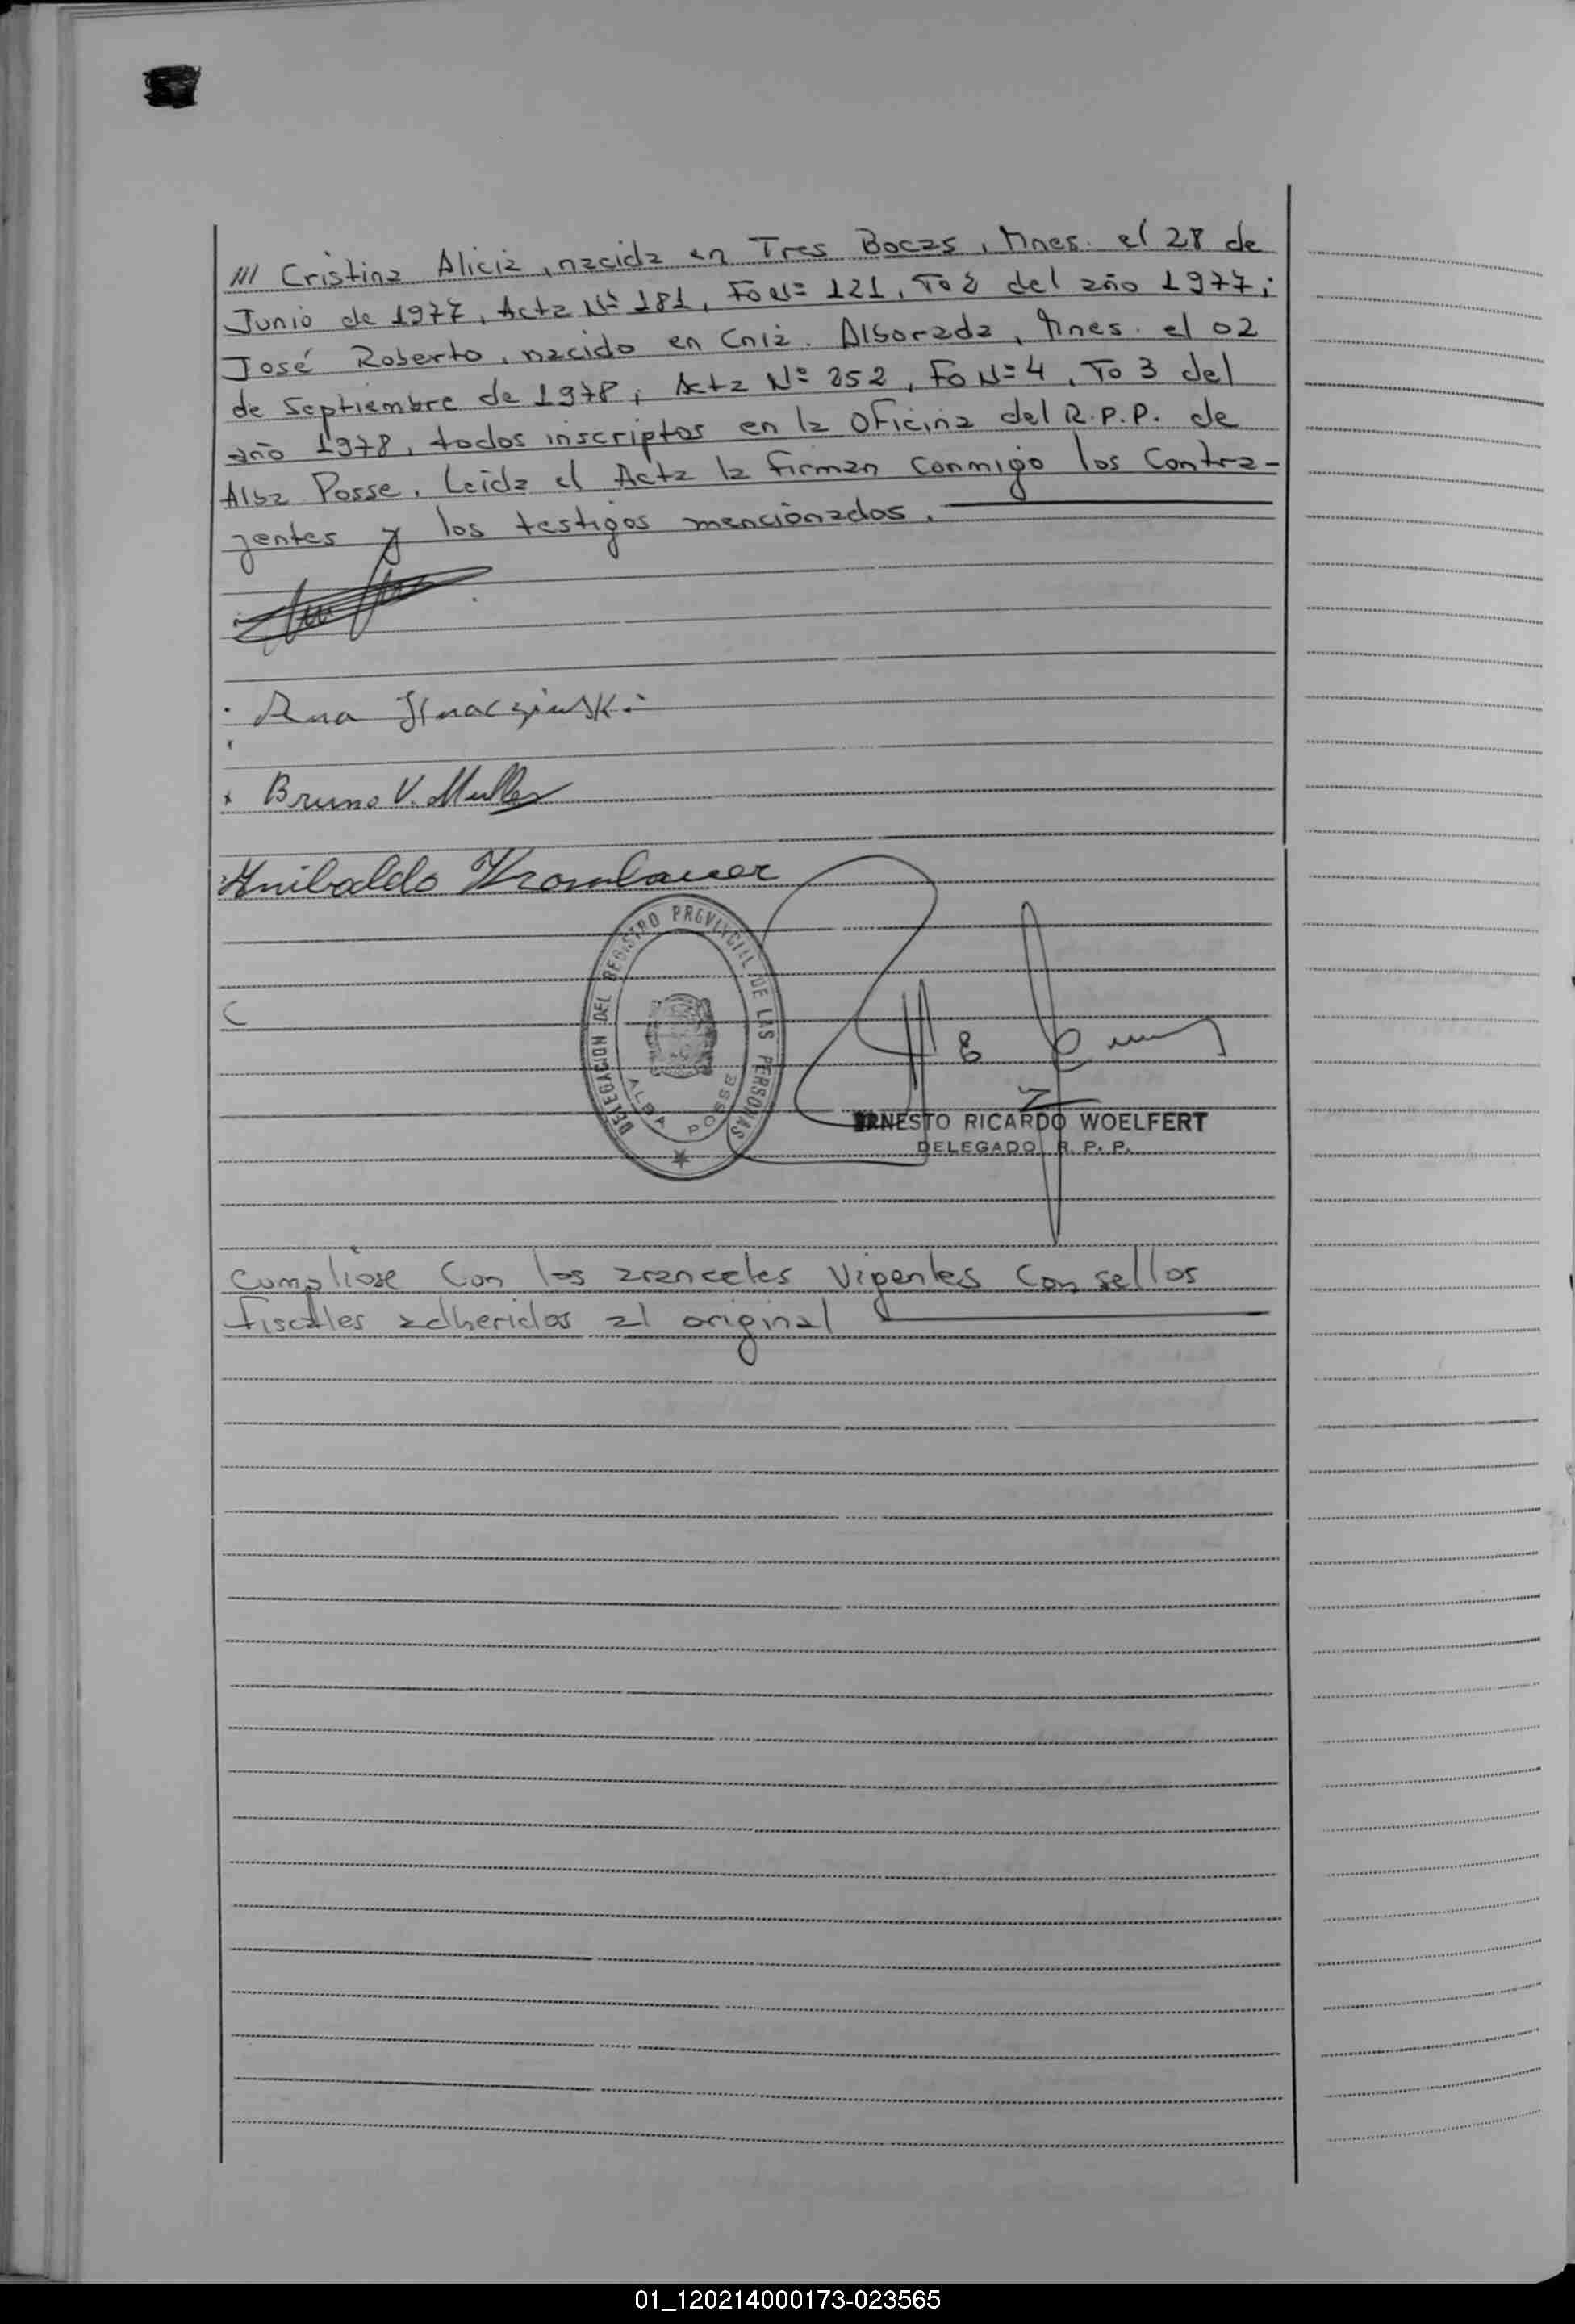 /// Cristina Alicia, nacida en Tres Bocas, Mnes. el 28 de
Junio de 1977, Acta Nº 181, Fo Nº 121, To 2 del año 1977;
José Roberto, nacido en Cnia. Alborada, Mnes. el 02
de Septiembre de 1978; Acta Nº 252, Fo Nº 4, To 3 del
año 1978, todos inscriptos en la Oficina del R.P.P. de
Alba Posse. Leida el Acta la firman conmigo los Contra-
yentes y los testigos mencionados.
Ana Ignaczinski
x Bruno V. Muller
Anibaldo Krombauer
DELEGACION DEL REGISTRO PROVINCIAL DE LAS PERSONAS
ALBA POSSE
ERNESTO RICARDO WOELFERT
DELEGADO R. P. P.
Cumpliose Con los aranceles Vigentes Con sellos
fiscales adheridos al original
01_120214000173-023565